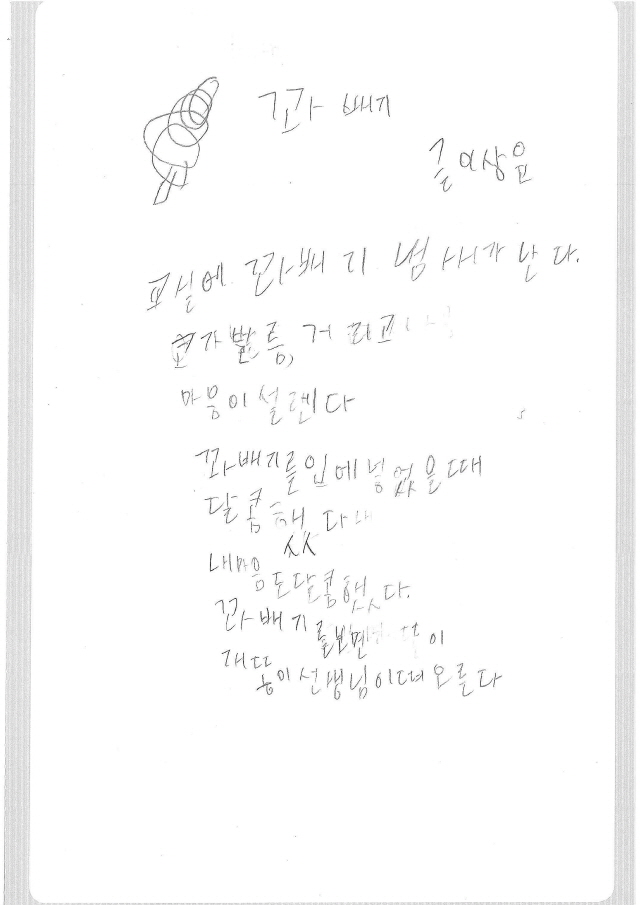 꽈배기
길이상윤
교실에 꽈배기 냄새가 난다.
코가벌름, 거리고
마음이설렌다
꽈배기를입에넣었을때
달콤했다
내마음도달콤했다.
꽈배기를보면
개똥이선생님이떠오른다